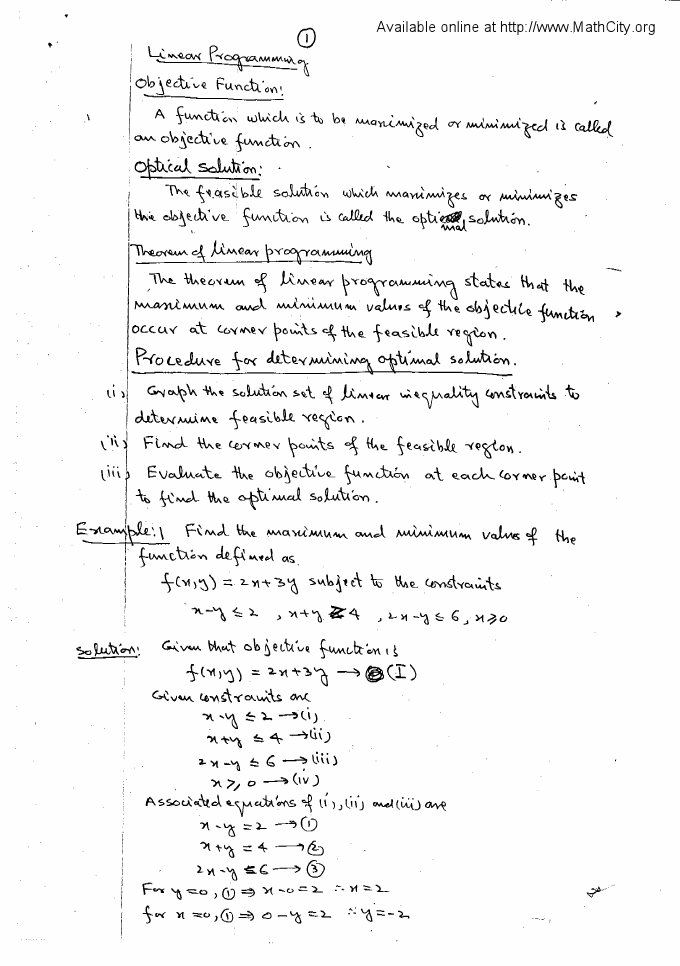 Available online at http://www.MathCity.org
1
Linear Programming
Objective Function:
A function which is to be maximized or minimized is called
an objective function.
Optical solution:
The feasible solution which maximizes or minimizes
the objective function is called the optimal solution.
Theorem of linear programming
The theorem of linear programming states that the
maximum and minimum values of the objective function
occur at corner points of the feasible region.
Procedure for determining optimal solution.
(i) Graph the solution set of linear inequality constraints to
determine feasible region.
(ii) Find the corner points of the feasible region.
(iii) Evaluate the objective function at each corner point
to find the optimal solution.
Example:1 Find the maximum and minimum values of the
function defined as
f(x,y) = 2x+3y subject to the constraints
x-y ≤ 2 , x+y ≤ 4 , 2x-y ≤ 6, x≥0
Solution: Given that objective function is
f(x,y) = 2x+3y → (I)
Given constraints are
x-y ≤ 2 → (i)
x+y ≤ 4 → (ii)
2x-y ≤ 6 → (iii)
x ≥ 0 → (iv)
Associated equations of (i), (ii) and (iii) are
x-y = 2 → ①
x+y = 4 → ②
2x-y = 6 → ③
For y=0, ① ⇒ x-0=2 ∴ x=2
for x=0, ① ⇒ 0-y=2 ∴ y=-2